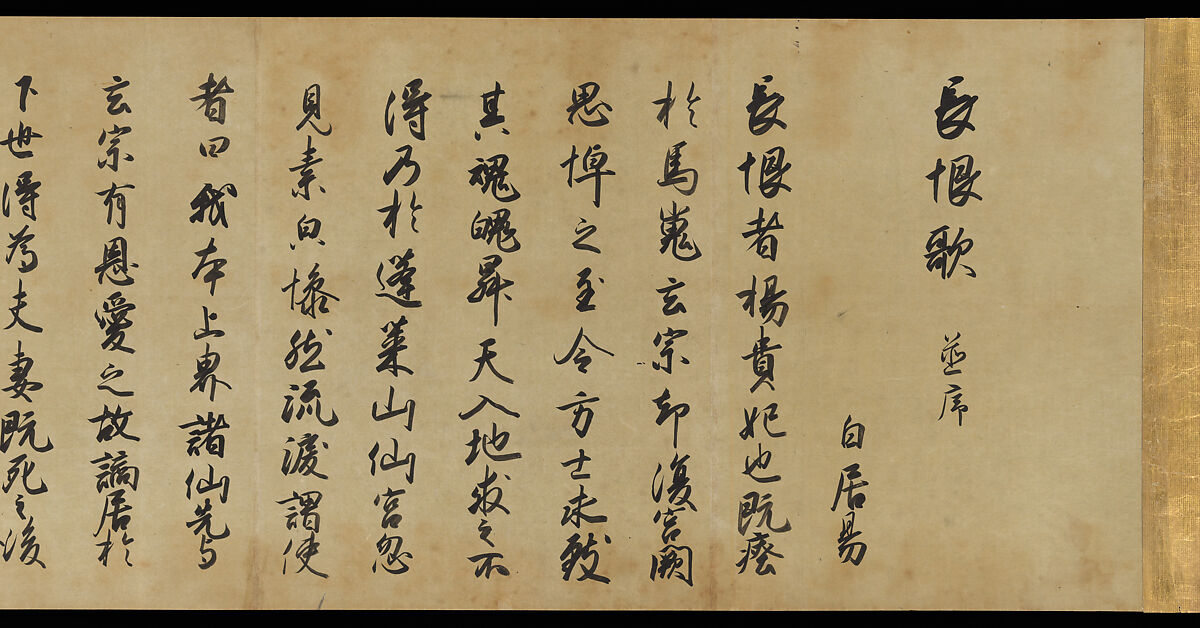 長恨歌 并序
白居易
長恨者楊貴妃也既瘞
於馬嵬玄宗却復宮闕
思悼之至令方士求致
其魂魄昇天入地求之不
得乃於蓬萊山仙宮忽
見素皃慘然流淚謂使
者曰我本上界諸仙先与
玄宗有恩愛之故謫居於
下世得為夫妻既死之後